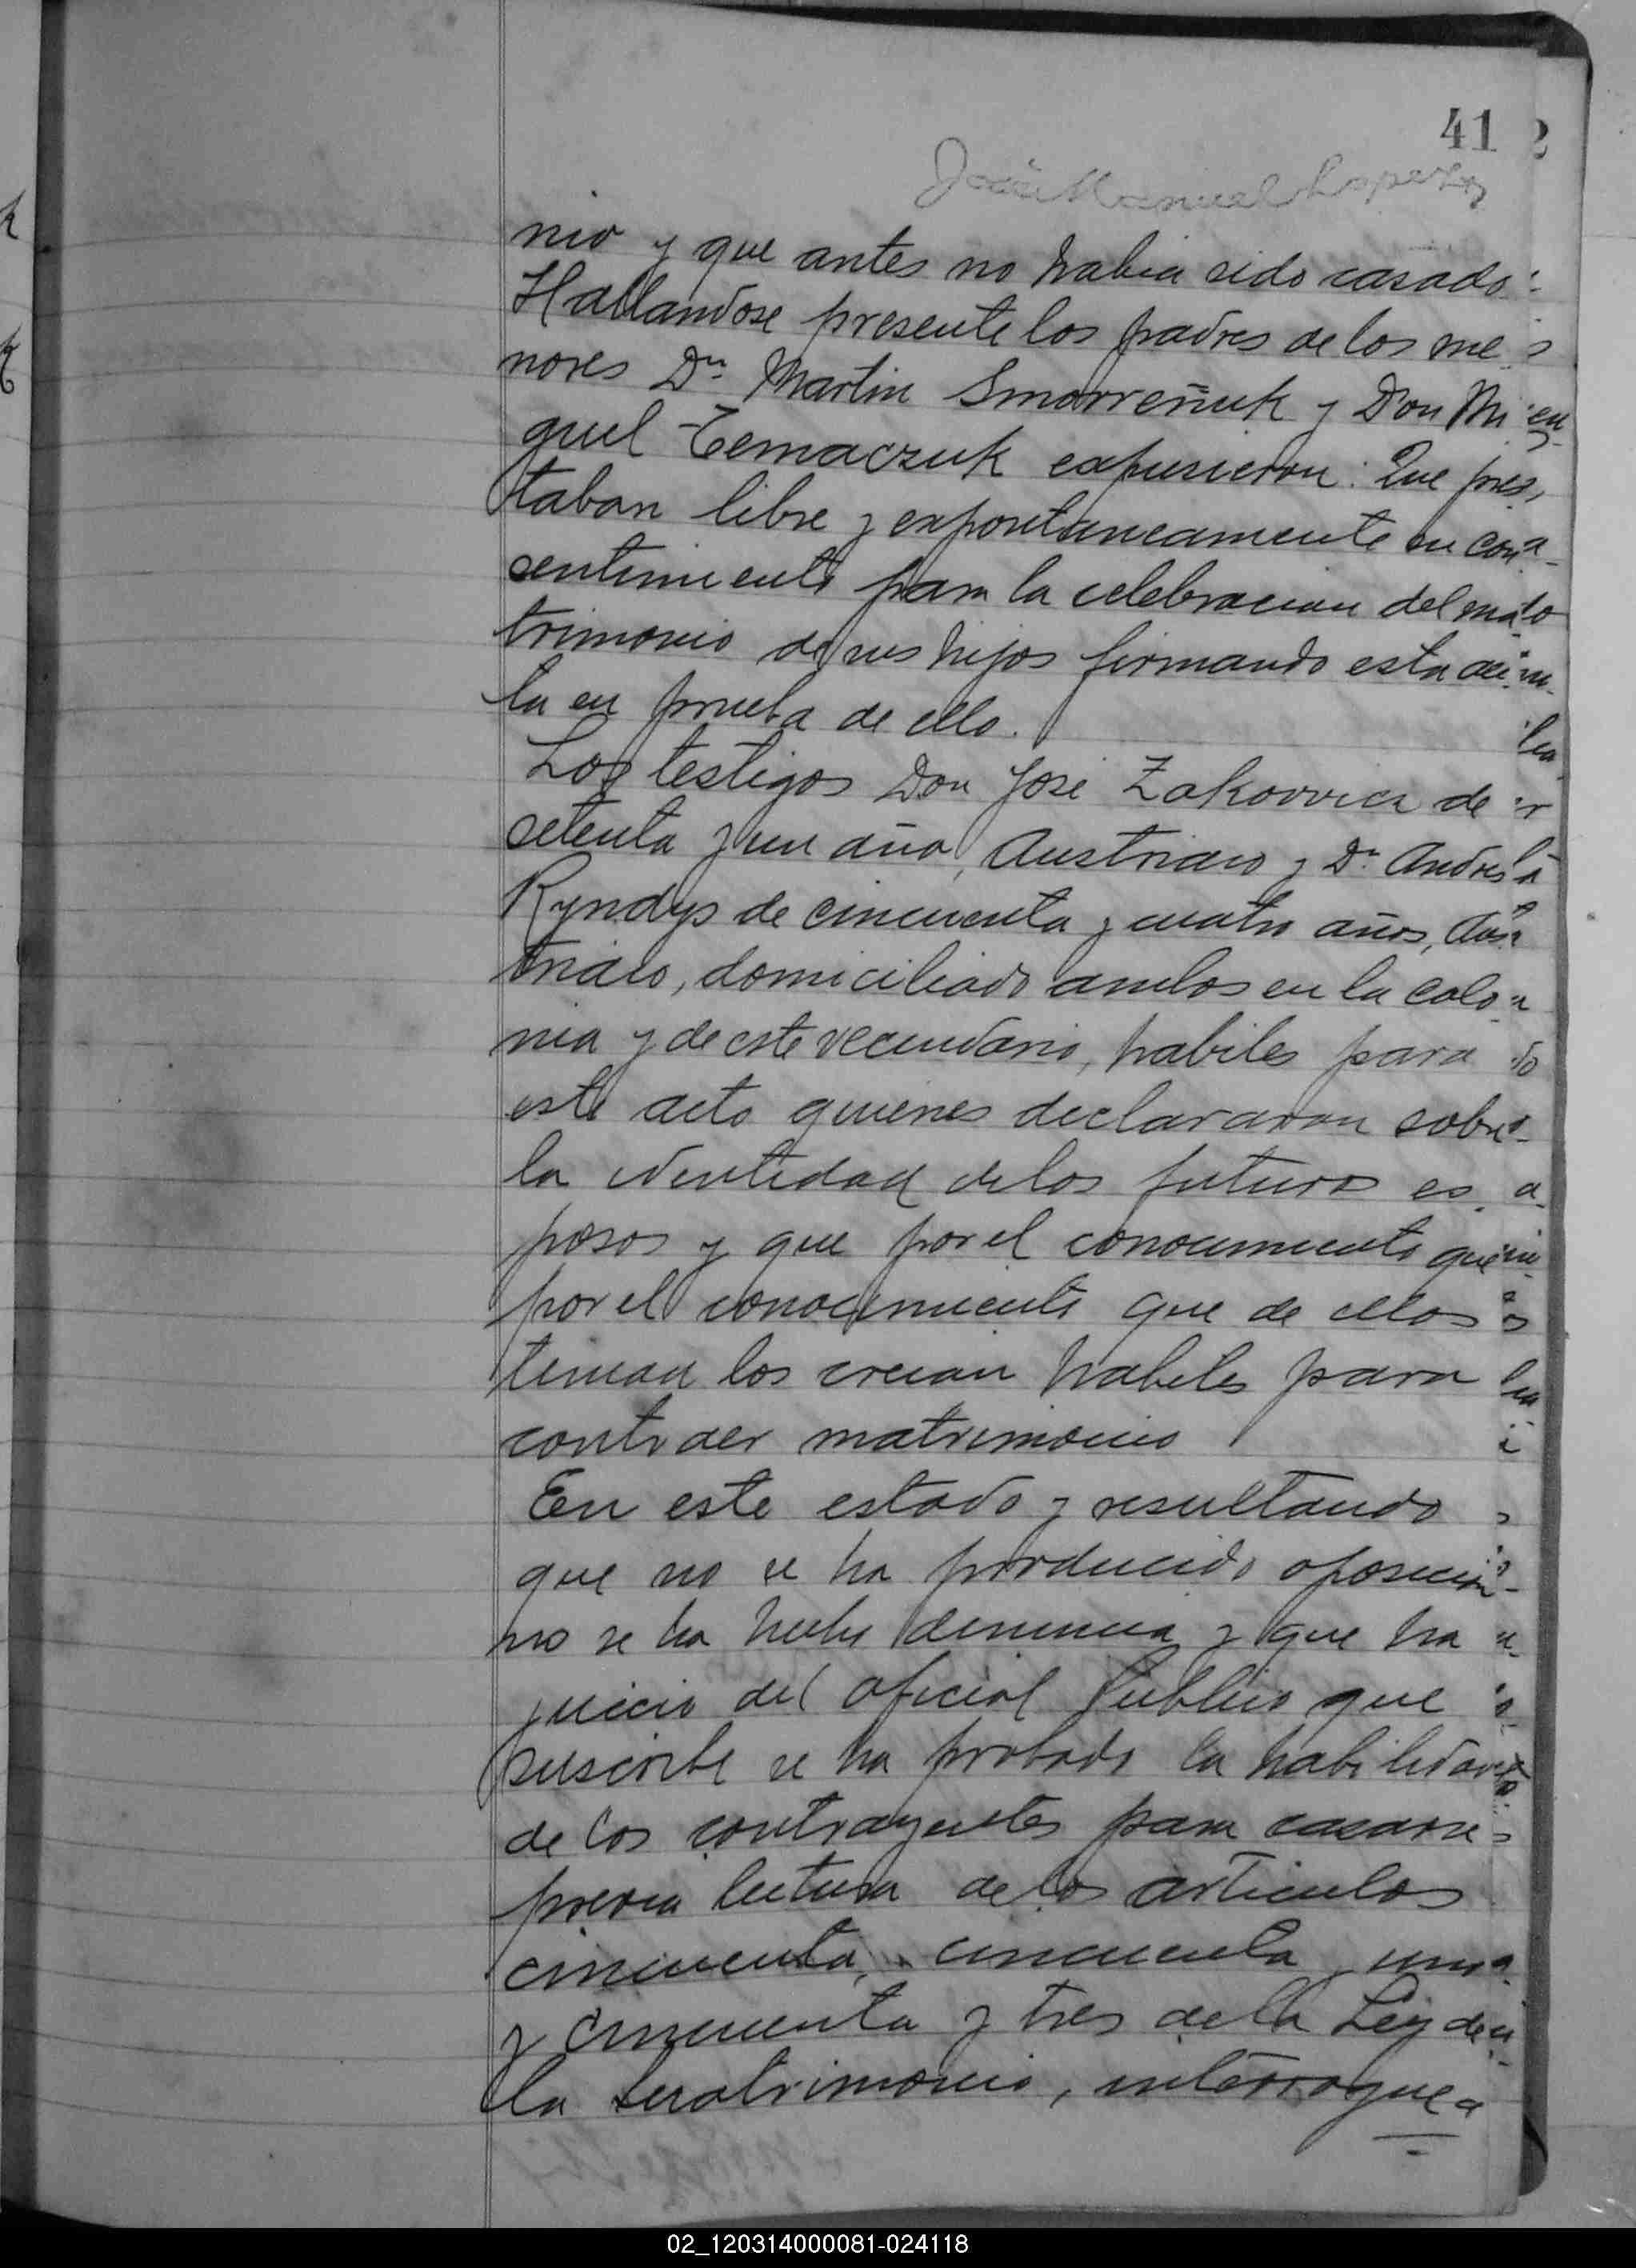 41
Manuel Lopez
nio y que antes no habia sido casado.
Hallandose presente los padres de los me
nores Dn Martin Smorreñuk y Don Mi
guel Temaczuk expusieron: Que pres,
taban libre y expontaneamente su con
sentimiento para la celebracion del ma
trimonio de sus hijos firmando esta ac
ta en prueba de ello.
Los testigos Don José Zakovvicz de
setenta y un año, Austriaco y Dn Andres
Ryndys de cincuenta y cuatro años, Aus
triaco, domiciliado ambos en la colo
nia y de este vecindario, habiles para
este acto quienes declararon sobre
la identidad de los futuros es
posos y que por el conocimiento que
por el conocimiento que de ellos
tenian los creian habiles para
contraer matrimonio
En este estado y resultando
que no se ha producido oposicion
no se ha hecho denuncia y que ha
juicio del oficial Publico que
suscribe se ha probado la habilidad
de los contrayentes para casarse
previa lectura de los articulos
cincuenta, cincuenta y uno
y cincuenta y tres de la Ley de
la matrimonio, interrogue a
02_120314000081-024118